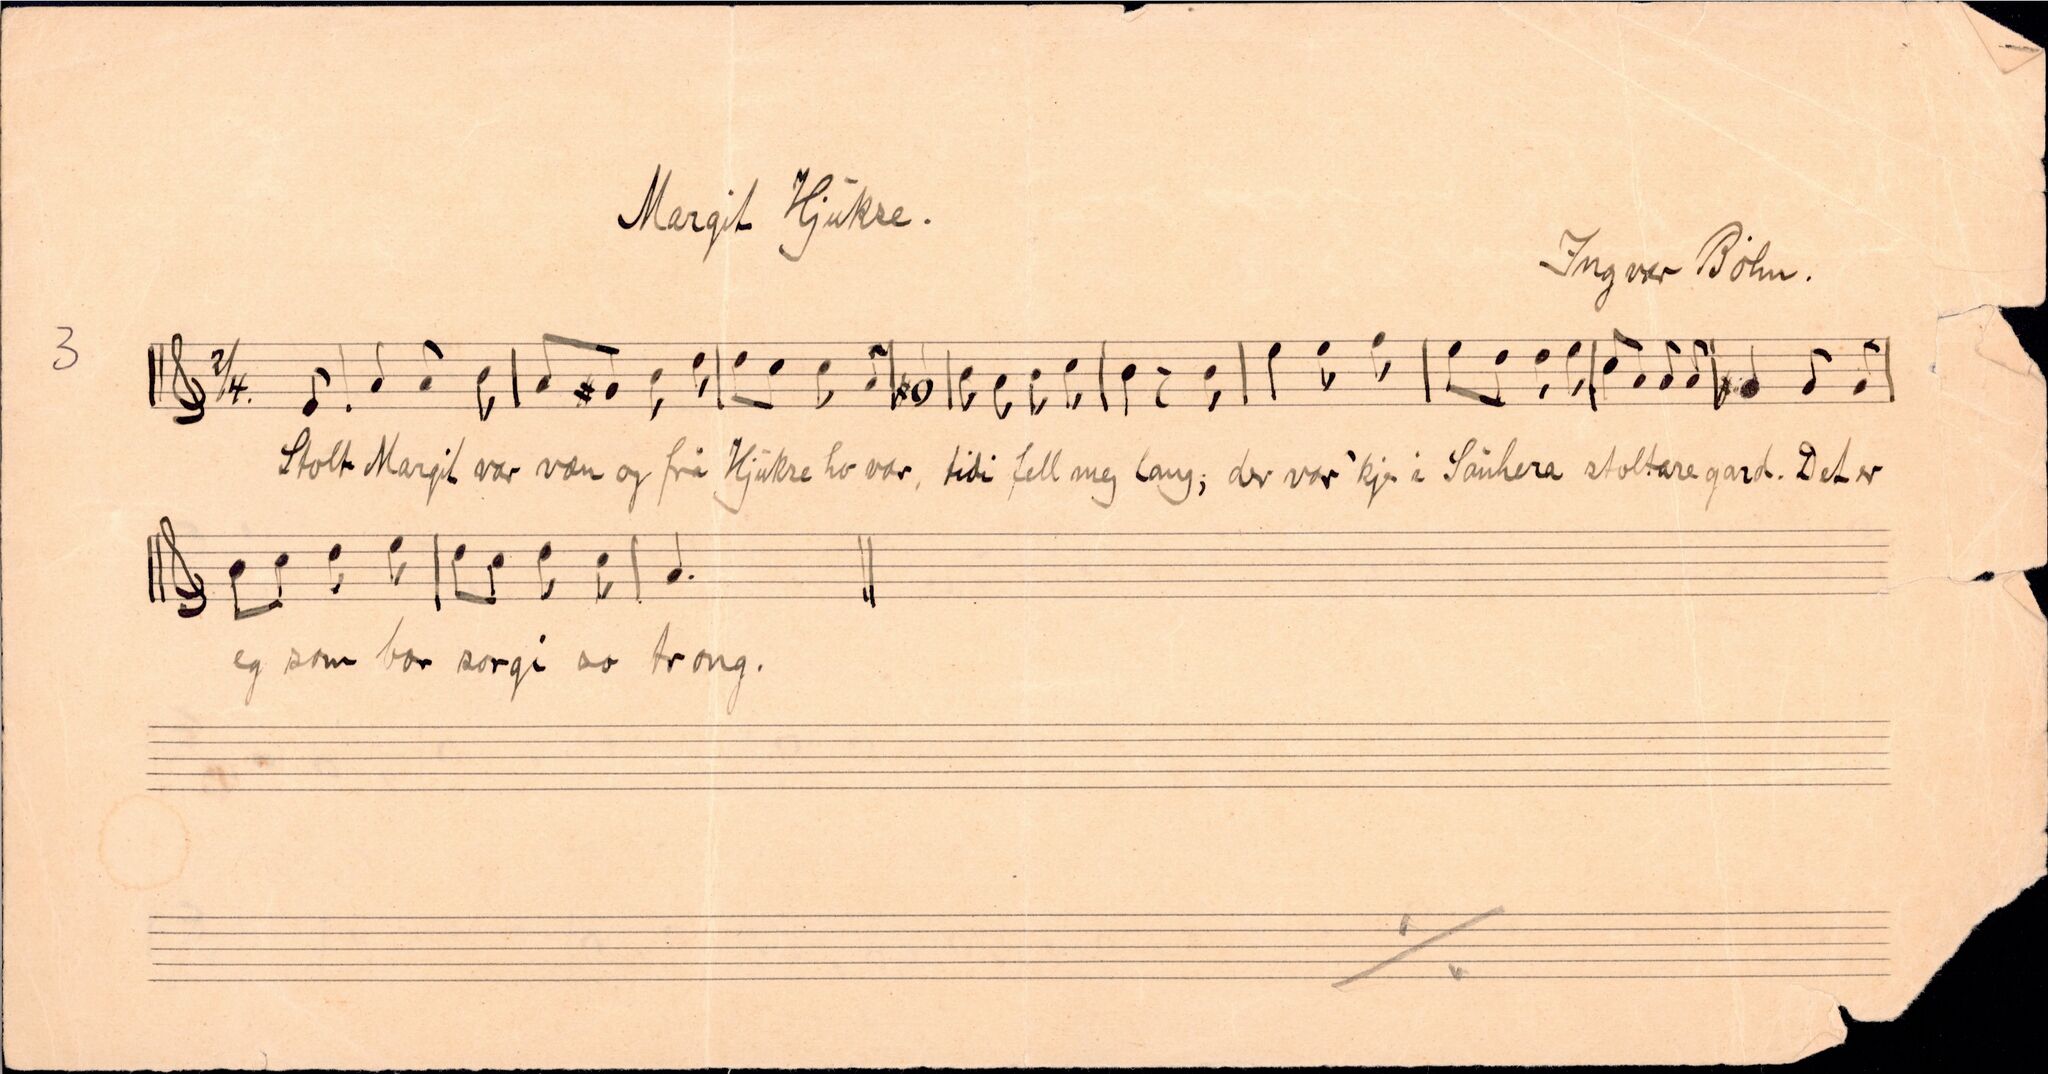 Margit Hjukse.
Ingvar Bøhn.
3
2/4.
Stolt Margit var væn og frå Hjukse ho var, tidi fell meg lang; der var'kje i Sauhera stoltare gard. Det er
eg som bær sorgi so trong.